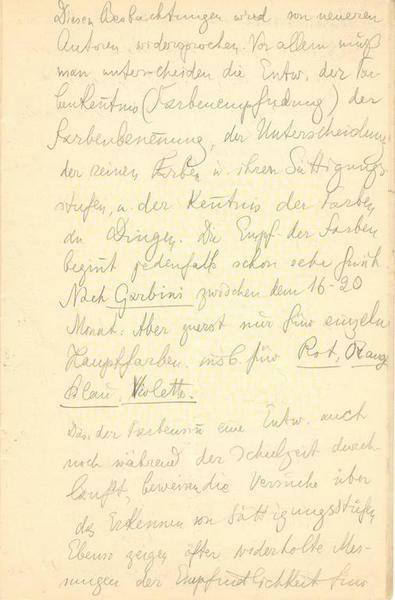 Diesen Beobachtungen wird von neueren
Autoren widersprochen. Vor allem muß
man unterscheiden die Entw. der Far-
benkentnis (Farbenempfindung) der
Farbenbenenung, der Unterscheidung
der reinen Farben u. ihren Sättigungs-
stufen, u. der Kentnis der Farben
an Dingen. Die Empf. der Farben
beginnt jedenfalls schon sehr früh
Nach Garbini zwischen dem 16-20
Monat. Aber zuerst nur für einzelne
Hauptfarben. insb. für Rot, Orange
Blau, Violette.
Das der Farbensinn eine Entw. auch
noch während der Schulzeit durch-
lauft, beweisen die Versuche über
das Erkennen von Sättigungsstufen
Ebenso zeigen öfter widerholte Mes-
sungen der Empfindlichkeit für